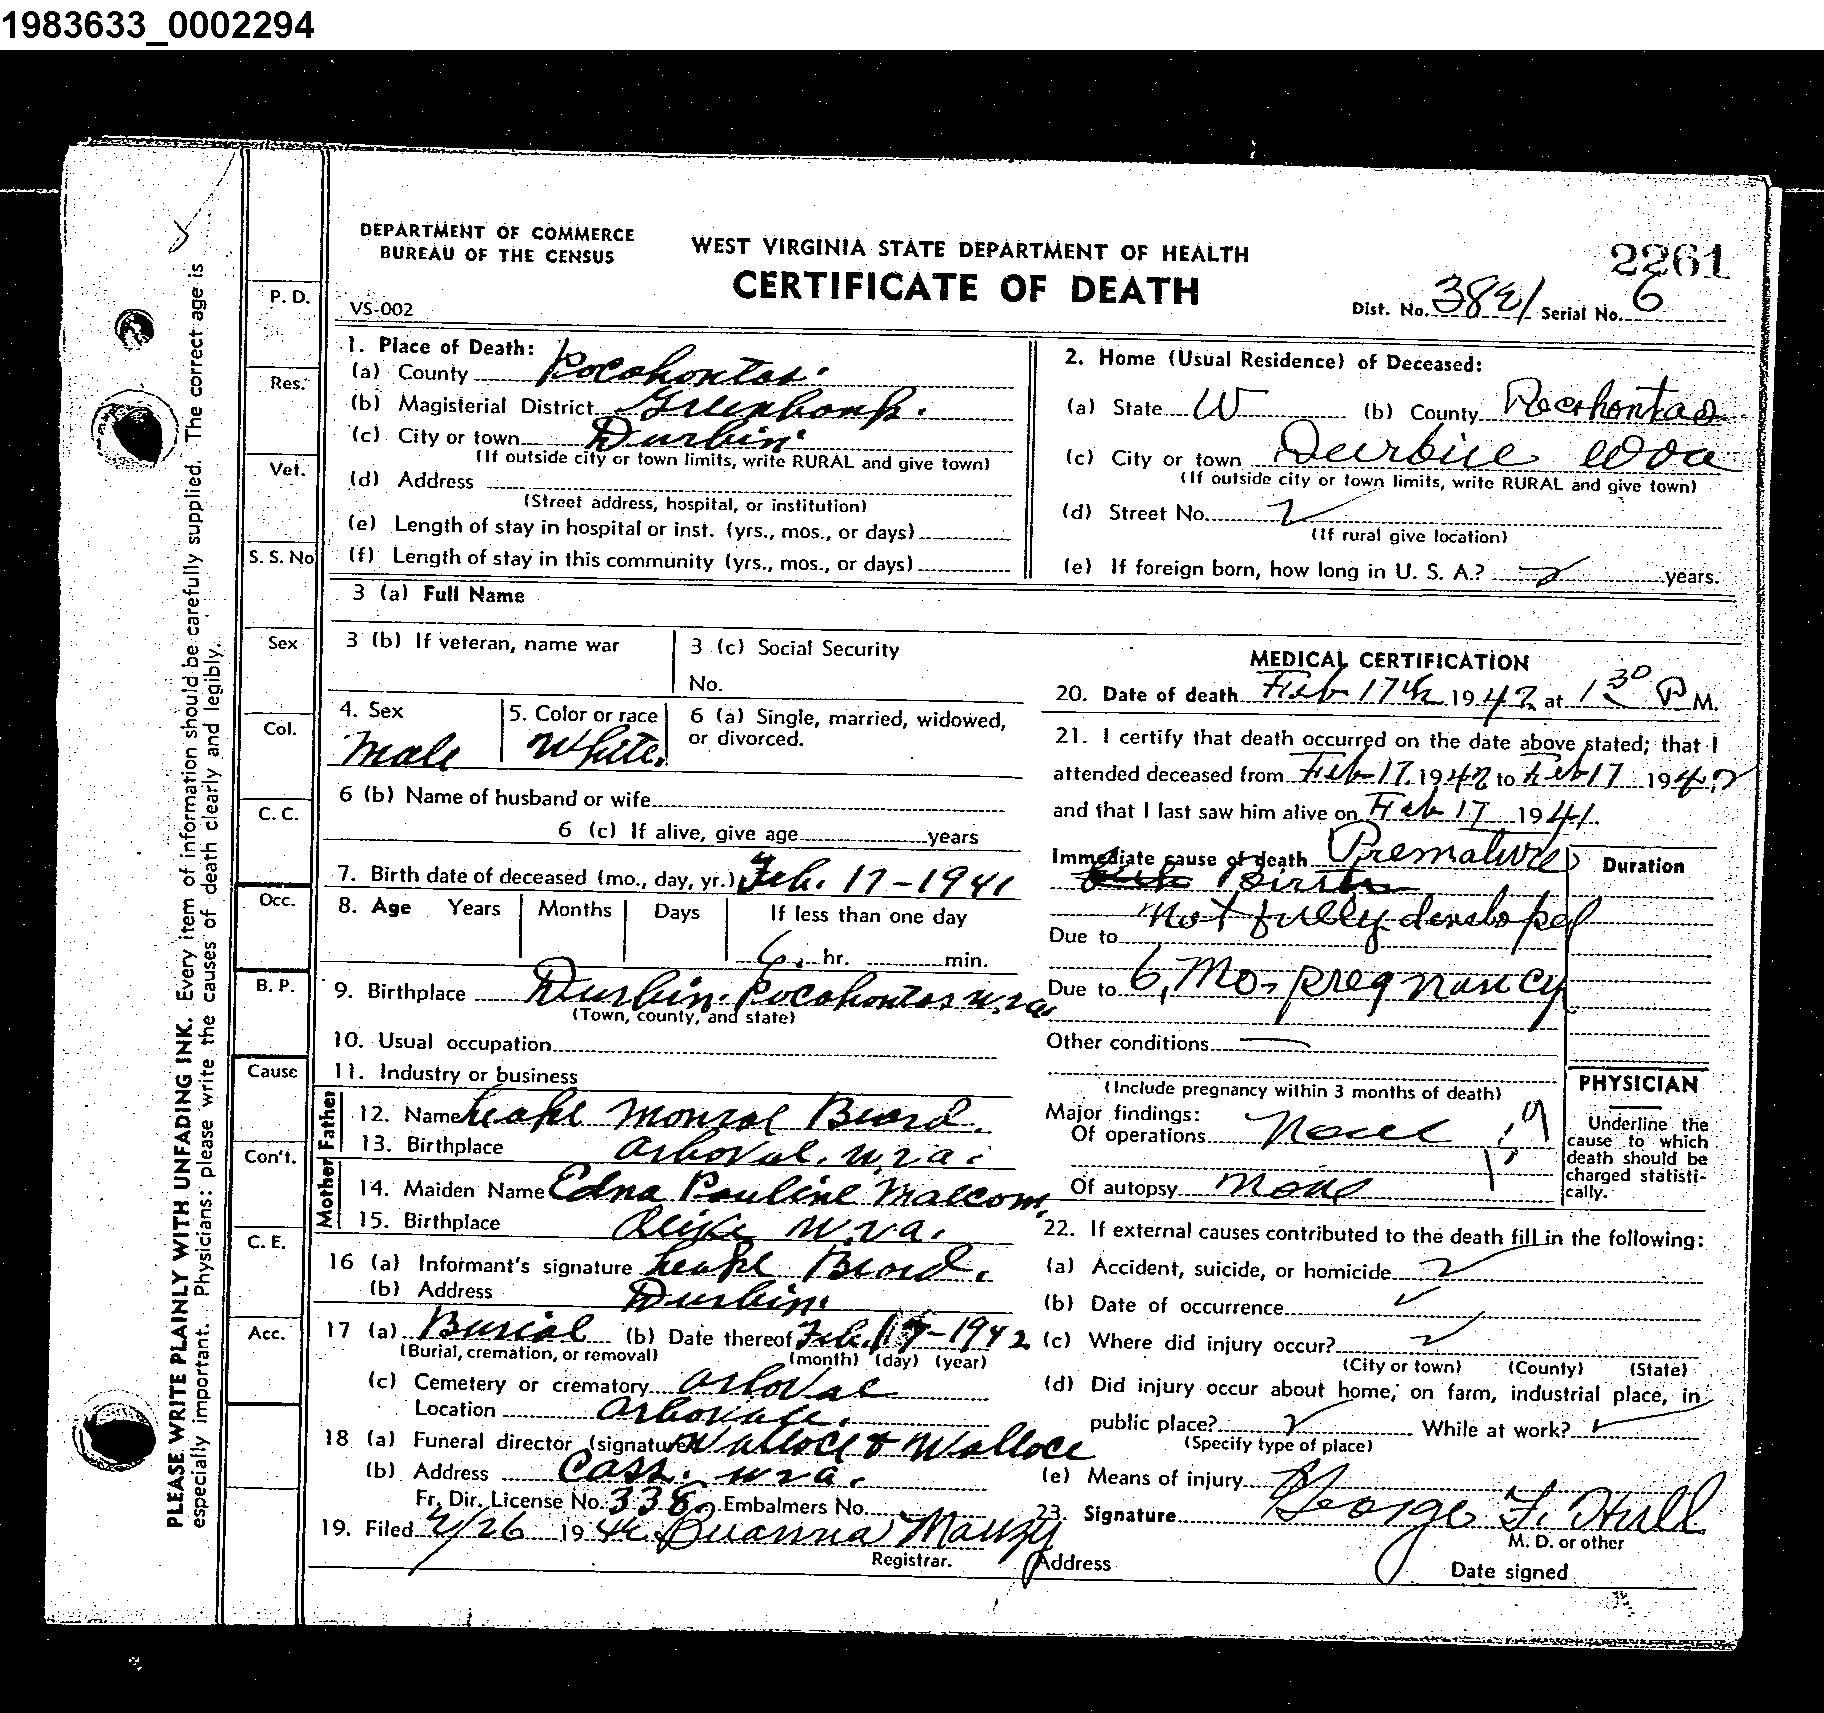 1983633_0002294
DEPARTMENT OF COMMERCE
BUREAU OF THE CENSUS
WEST VIRGINIA STATE DEPARTMENT OF HEALTH
CERTIFICATE OF DEATH
2261
VS-002
Dist. No. 3881 Serial No. 6
PLEASE WRITE PLAINLY WITH UNFADING INK. Every item of information should be carefully supplied. The correct age is
especially important. Physicians: please write the causes of death clearly and legibly.
P. D.
Res.
Vet.
S. S. No
Sex
Col.
C. C.
Occ.
B. P.
Cause
Con't.
C. E.
Acc.
1. Place of Death:
(a) County Pocahontas.
(b) Magisterial District Greenbank.
(c) City or town Durbin.
(If outside city or town limits, write RURAL and give town)
(d) Address
(Street address, hospital, or institution)
(e) Length of stay in hospital or inst. (yrs., mos., or days)
(f) Length of stay in this community (yrs., mos., or days)
2. Home (Usual Residence) of Deceased:
(a) State W (b) County Pocahontas
(c) City or town Durbin WVa
(If outside city or town limits, write RURAL and give town)
(d) Street No.
(If rural give location)
(e) If foreign born, how long in U. S. A.? years.
3 (a) Full Name
3 (b) If veteran, name war
3 (c) Social Security
No.
4. Sex
Male
5. Color or race
White.
6 (a) Single, married, widowed,
or divorced.
6 (b) Name of husband or wife
6 (c) If alive, give age years
7. Birth date of deceased (mo., day, yr.) Feb. 17-1941
8. Age Years Months Days If less than one day
6. hr. min.
9. Birthplace Durbin. Pocahontas W.Va.
(Town, county, and state)
10. Usual occupation
11. Industry or business
Father
12. Name Leake Monroe Beard.
13. Birthplace Arboval. W.Va.
Mother
14. Maiden Name Edna Pauline Malcom.
15. Birthplace W.Va.
16 (a) Informant's signature Leake Beard.
(b) Address Durbin.
17 (a) Burial (b) Date thereof Feb. 17-1942
(Burial, cremation, or removal) (month) (day) (year)
(c) Cemetery or crematory Arboval
Location Arbovale.
18 (a) Funeral director (signature Wallace & Wallace
(b) Address Cass. W.Va.
Fr. Dir. License No. 338 Embalmers No.
19. Filed 2/26 1942 Mauzy
Registrar.
MEDICAL CERTIFICATION
20. Date of death Feb 17th 1942 at 1 30 P M.
21. I certify that death occurred on the date above stated; that I
attended deceased from Feb 17 1942 to Feb 17 1942
and that I last saw him alive on Feb 17 1941.
Immediate cause of death Premature
Birth
Duration
Not fully developed
Due to
Due to 6, Mo. pregnancy
Other conditions
(Include pregnancy within 3 months of death)
Major findings:
Of operations None
Of autopsy None
PHYSICIAN
Underline the
cause to which
death should be
charged statisti-
cally.
22. If external causes contributed to the death fill in the following:
(a) Accident, suicide, or homicide
(b) Date of occurrence
(c) Where did injury occur?
(City or town) (County) (State)
(d) Did injury occur about home, on farm, industrial place, in
public place? While at work?
(Specify type of place)
(e) Means of injury
23. Signature George F. Hull
M. D. or other
Address Date signed